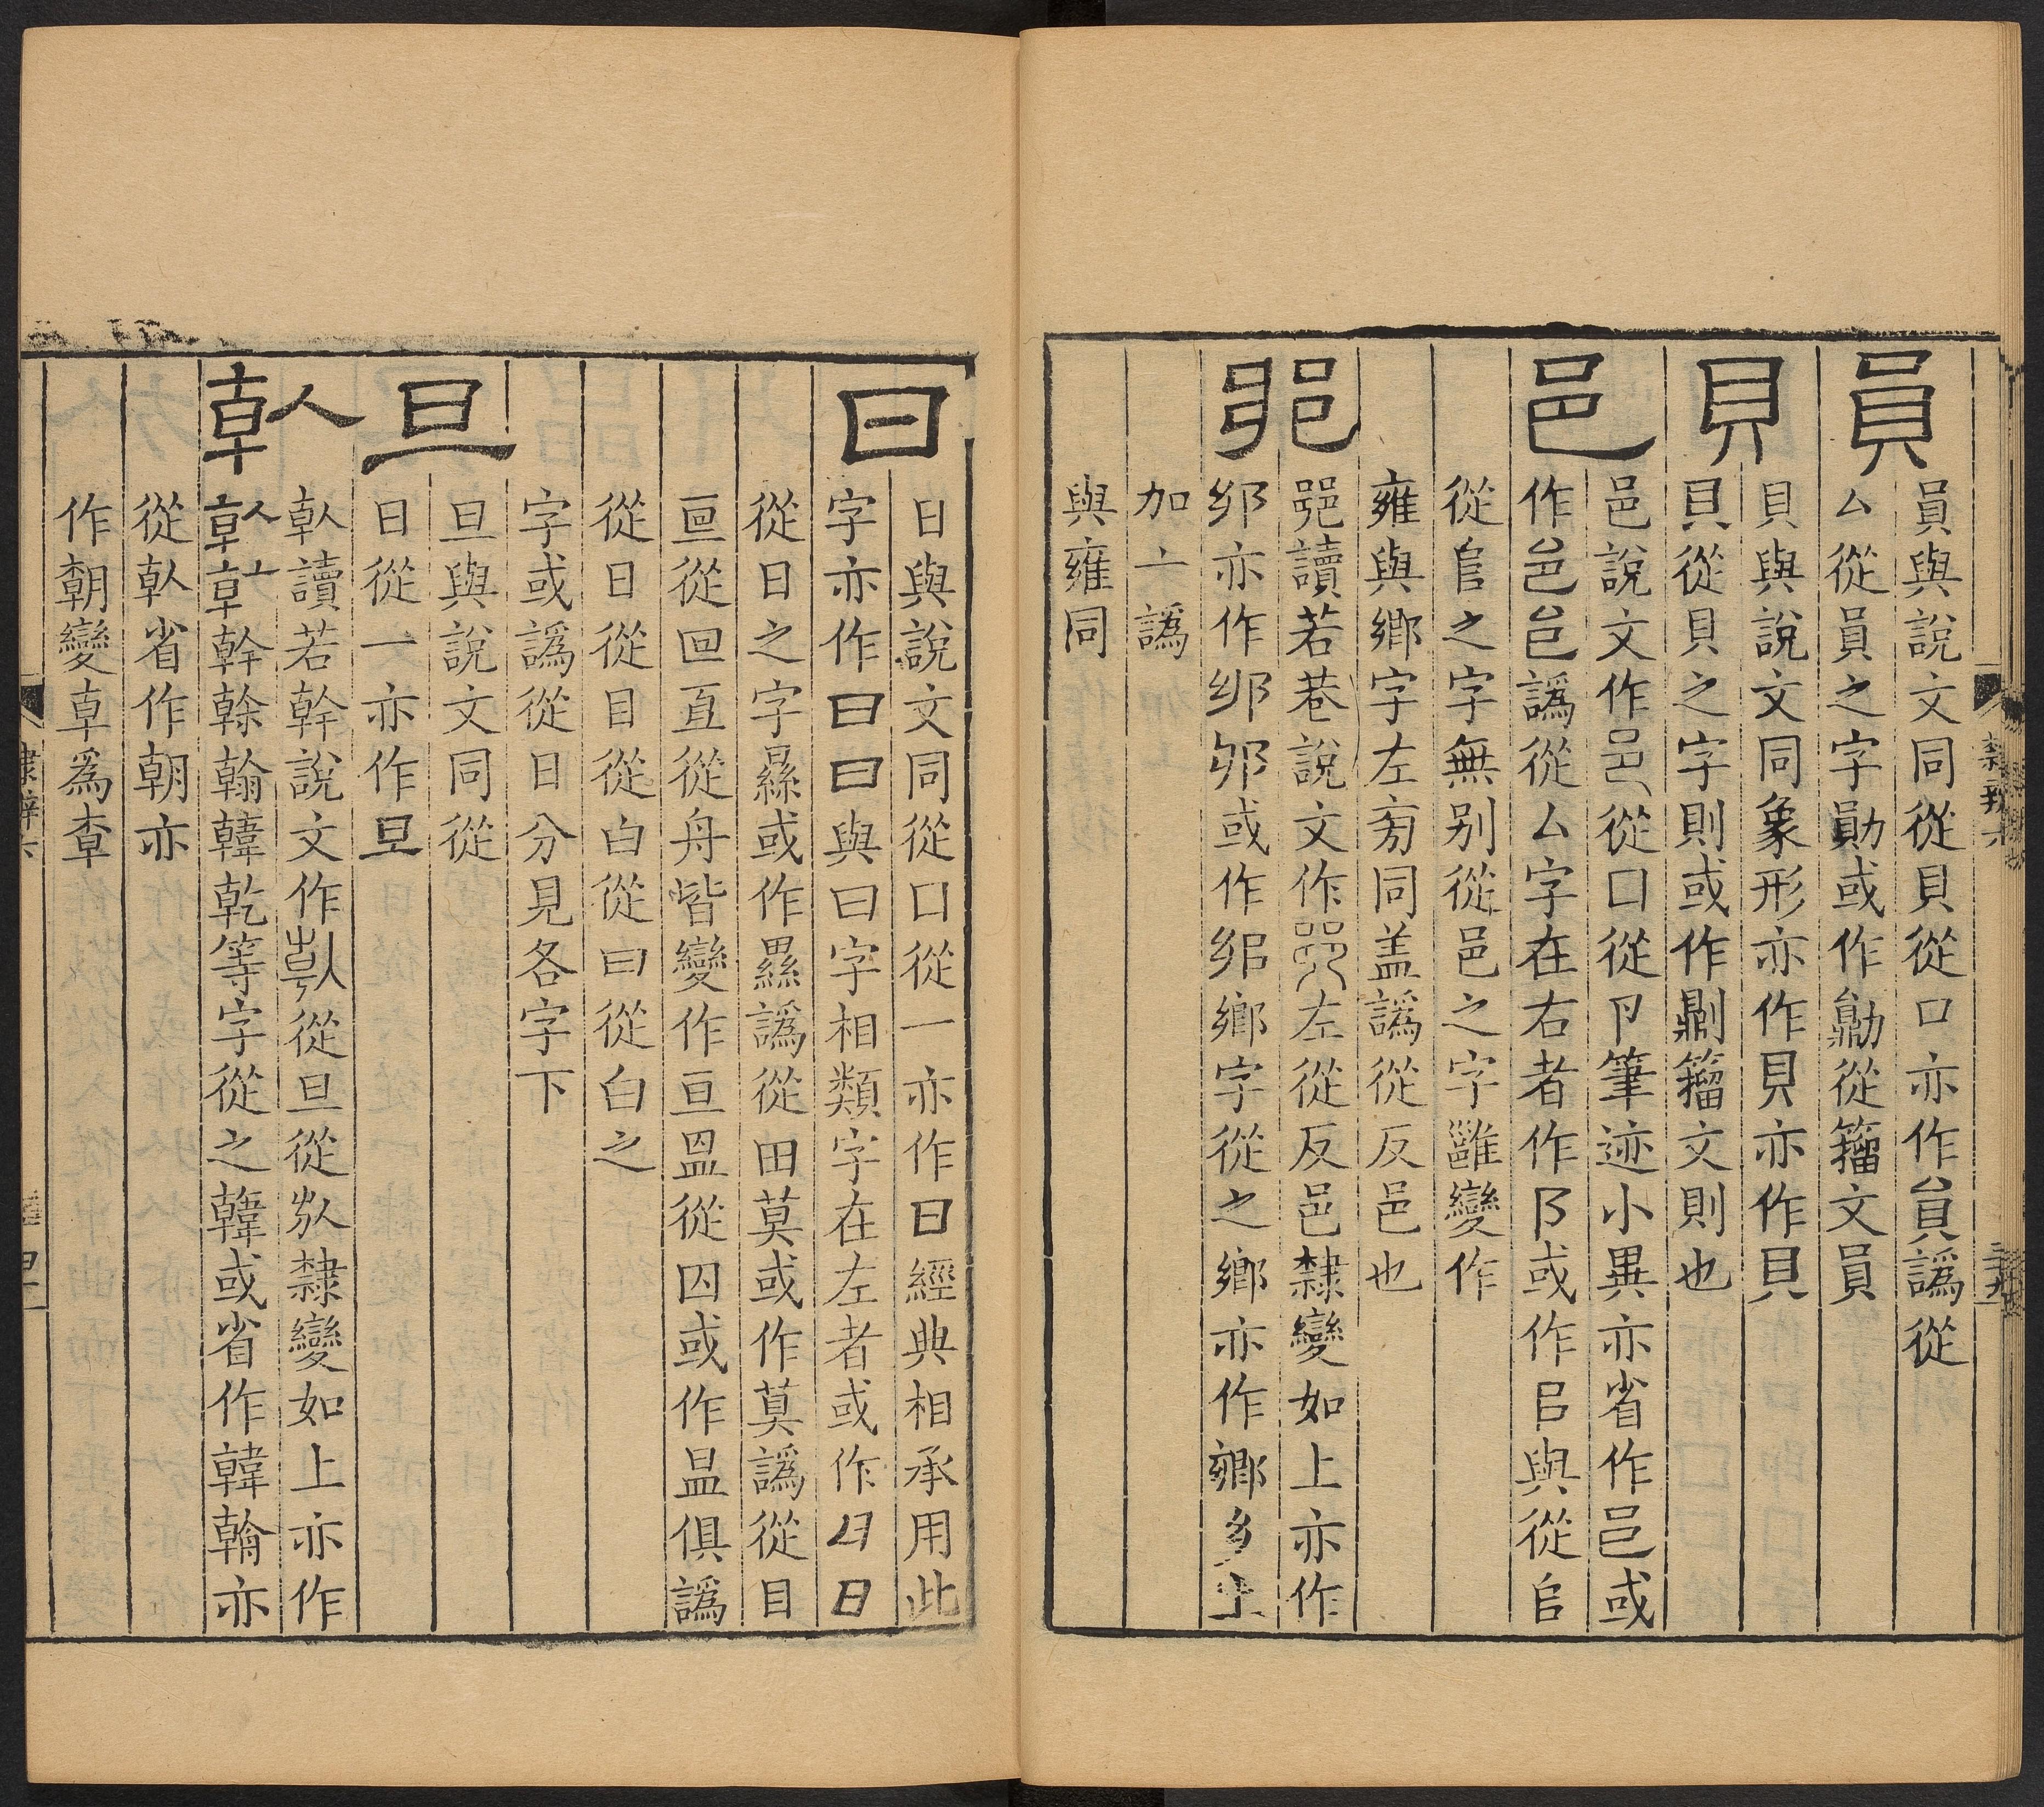 員
員與說文同從貝從口亦作貟譌從
厶從員之字勛或作勛從籀文員
貝
貝與說文同象形亦作貝亦作貝
貝從貝之字則或作鼎刂籀文則也
邑
邑說文作邑從囗從卪筆迹小異亦省作邑或
作邑邑譌從厶字在右者作阝或作㠯與從𠂤
從𠂤之字無別從邑之字雝變作
雍與鄉字左旁同盖譌從反邑也
𨛜
𨛜讀若巷說文作𨛜左從反邑隸變如上亦作
亦作或作鄉字從之鄉亦作鄉
加亠譌
與雍同
隸辨六
三十九
日
日與說文同從口從一亦作曰經典相承用此
字亦作曰曰與曰字相類字在左者或作日日
從日之字㬎或作㬎譌從田莫或作莫譌從目
亘從回𠄢從舟皆變作亘昷從囚或作昷俱譌
從日從目從白從曰從白之
字或譌從日分見各字下
旦
旦與說文同從
日從一亦作旦
倝
倝讀若幹說文作倝從旦從㫃隸變如上亦作
幹榦翰韓乾等字從之韓或省作韓翰亦
從倝省作朝亦
作朝變𠦝爲
隸辨六